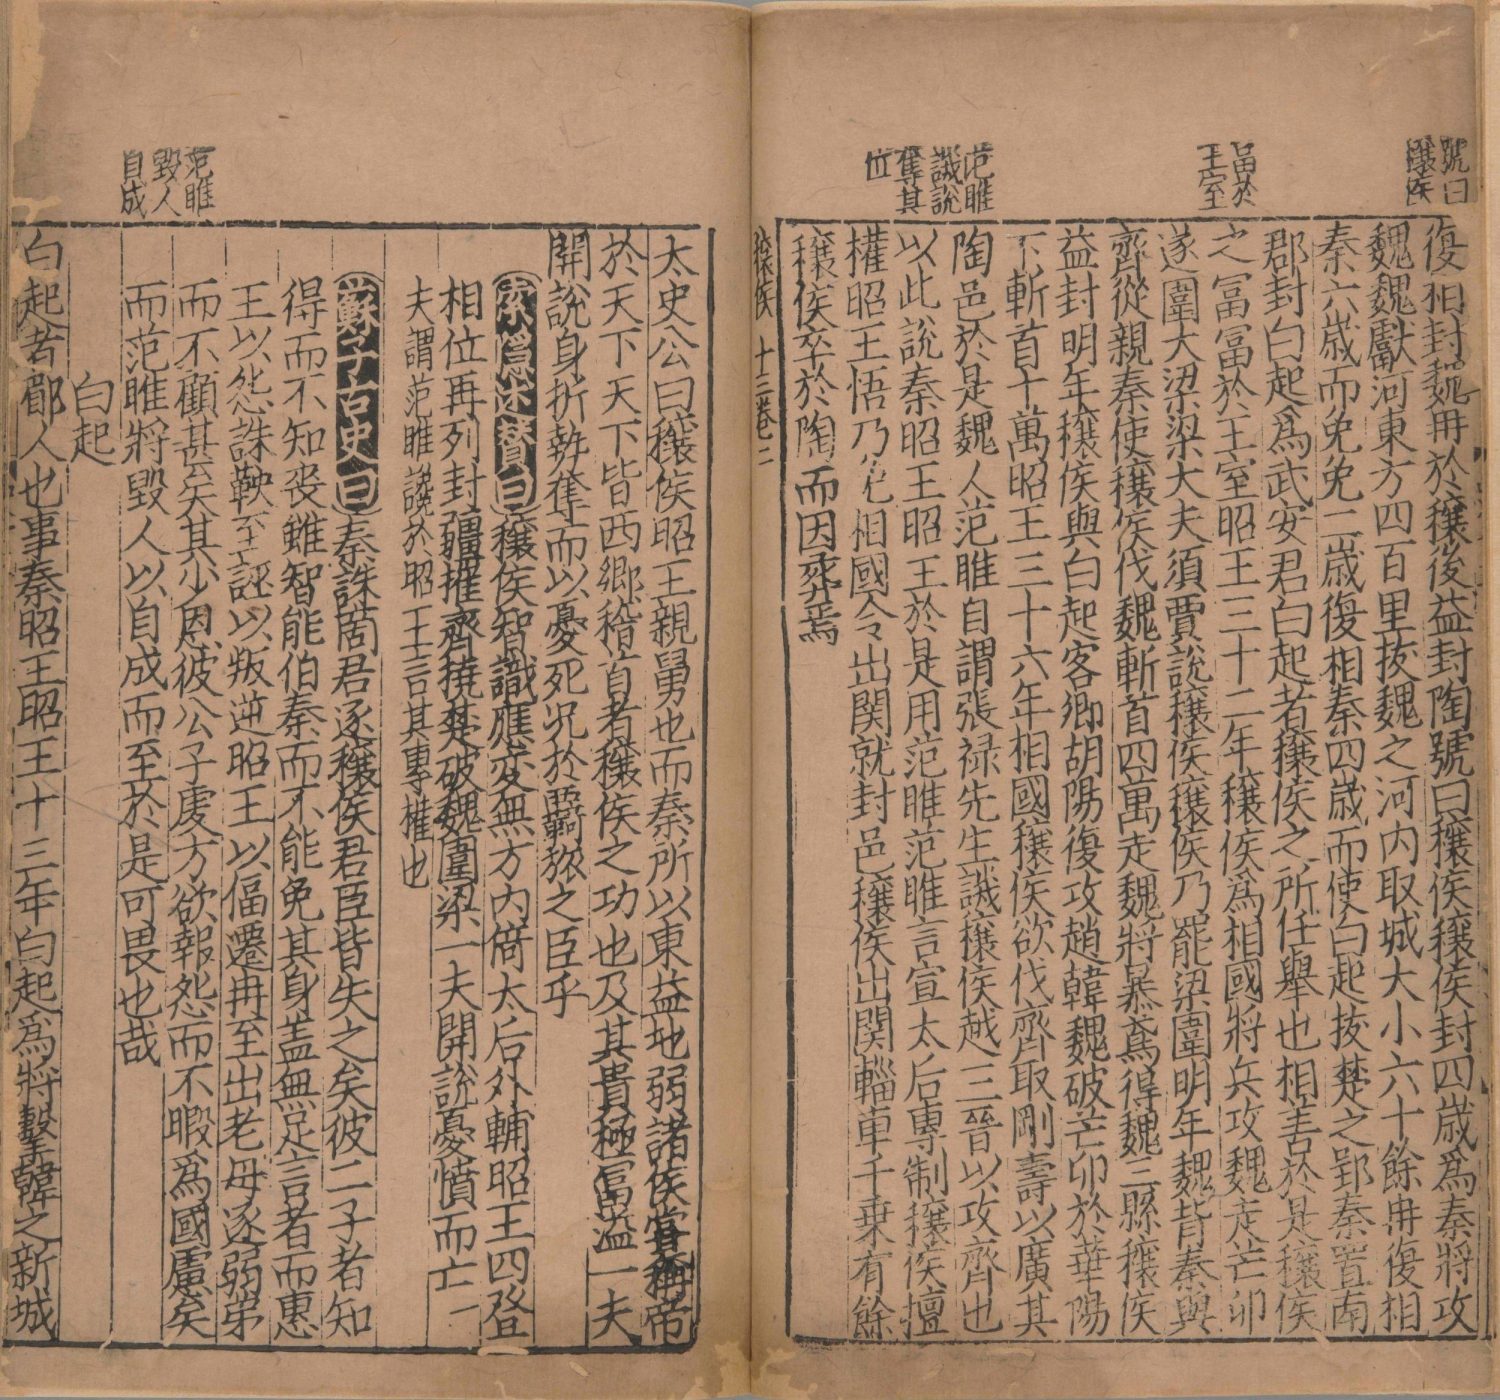 號曰
穰侯
富於
王室
范睢
譏說
奪其
位
復相封魏冉於穰後益封陶號曰穰侯穰侯封四歲爲秦將攻
魏魏獻河東方四百里拔魏之河内取城大小六十餘冉復相
秦六歲而免免二歲復相秦四歲而使白起拔楚之郢秦置南
郡封白起爲武安君白起者穰侯之所任舉也相善於是穰侯
之富富於王室昭王三十二年穰侯爲相國將兵攻魏走芒卯
遂圍大梁梁大夫須賈說穰侯穰侯乃罷梁圍明年魏背秦與
齊從親秦使穰侯伐魏斬首四萬走魏將暴鳶得魏三縣穰侯
益封明年穰侯與白起客卿胡陽復攻趙韓魏破芒卯於華陽
下斬首十萬昭王三十六年相國穰侯欲伐齊取剛壽以廣其
陶邑於是魏人范睢自謂張禄先生譏穰侯越三晉以攻齊也
以此説秦昭王昭王於是用范睢范睢言宣太后專制穰侯擅
權昭王悟乃免相國令出関就封邑穰侯出関輜車千乗有餘
穰侯卒於陶而因葬焉
穰侯 十三卷 二
范睢
毀人
自成
太史公曰穰侯昭王親舅也而秦所以東益地弱諸侯嘗稱帝
於天下天下皆西鄉稽首者穰侯之功也及其貴極富溢一夫
開說身折埶奪而以憂死况於羇旅之臣乎
索隱述贊曰穰侯智識應变無方内倚太后外輔昭王四登
相位再列封疆摧齊撓楚破魏圍梁一夫開說憂憤而亡一
夫謂范睢說於昭王言其專權也
蘇子古史曰秦誅商君逐穰侯君臣皆失之矣彼二子者知
得而不知丧雖智能伯秦而不能免其身盖無足言者而惠
王以怨誅鞅至誣以叛逆昭王以偪遷冉至出老母逐弱弟
而不顧甚矣其少恩彼公子虔方欲報怨而不暇爲國慮矣
而范睢將毀人以自成而至於是可畏也哉
白起
白起者郿人也事秦昭王昭王十三年白起爲將擊韓之新城